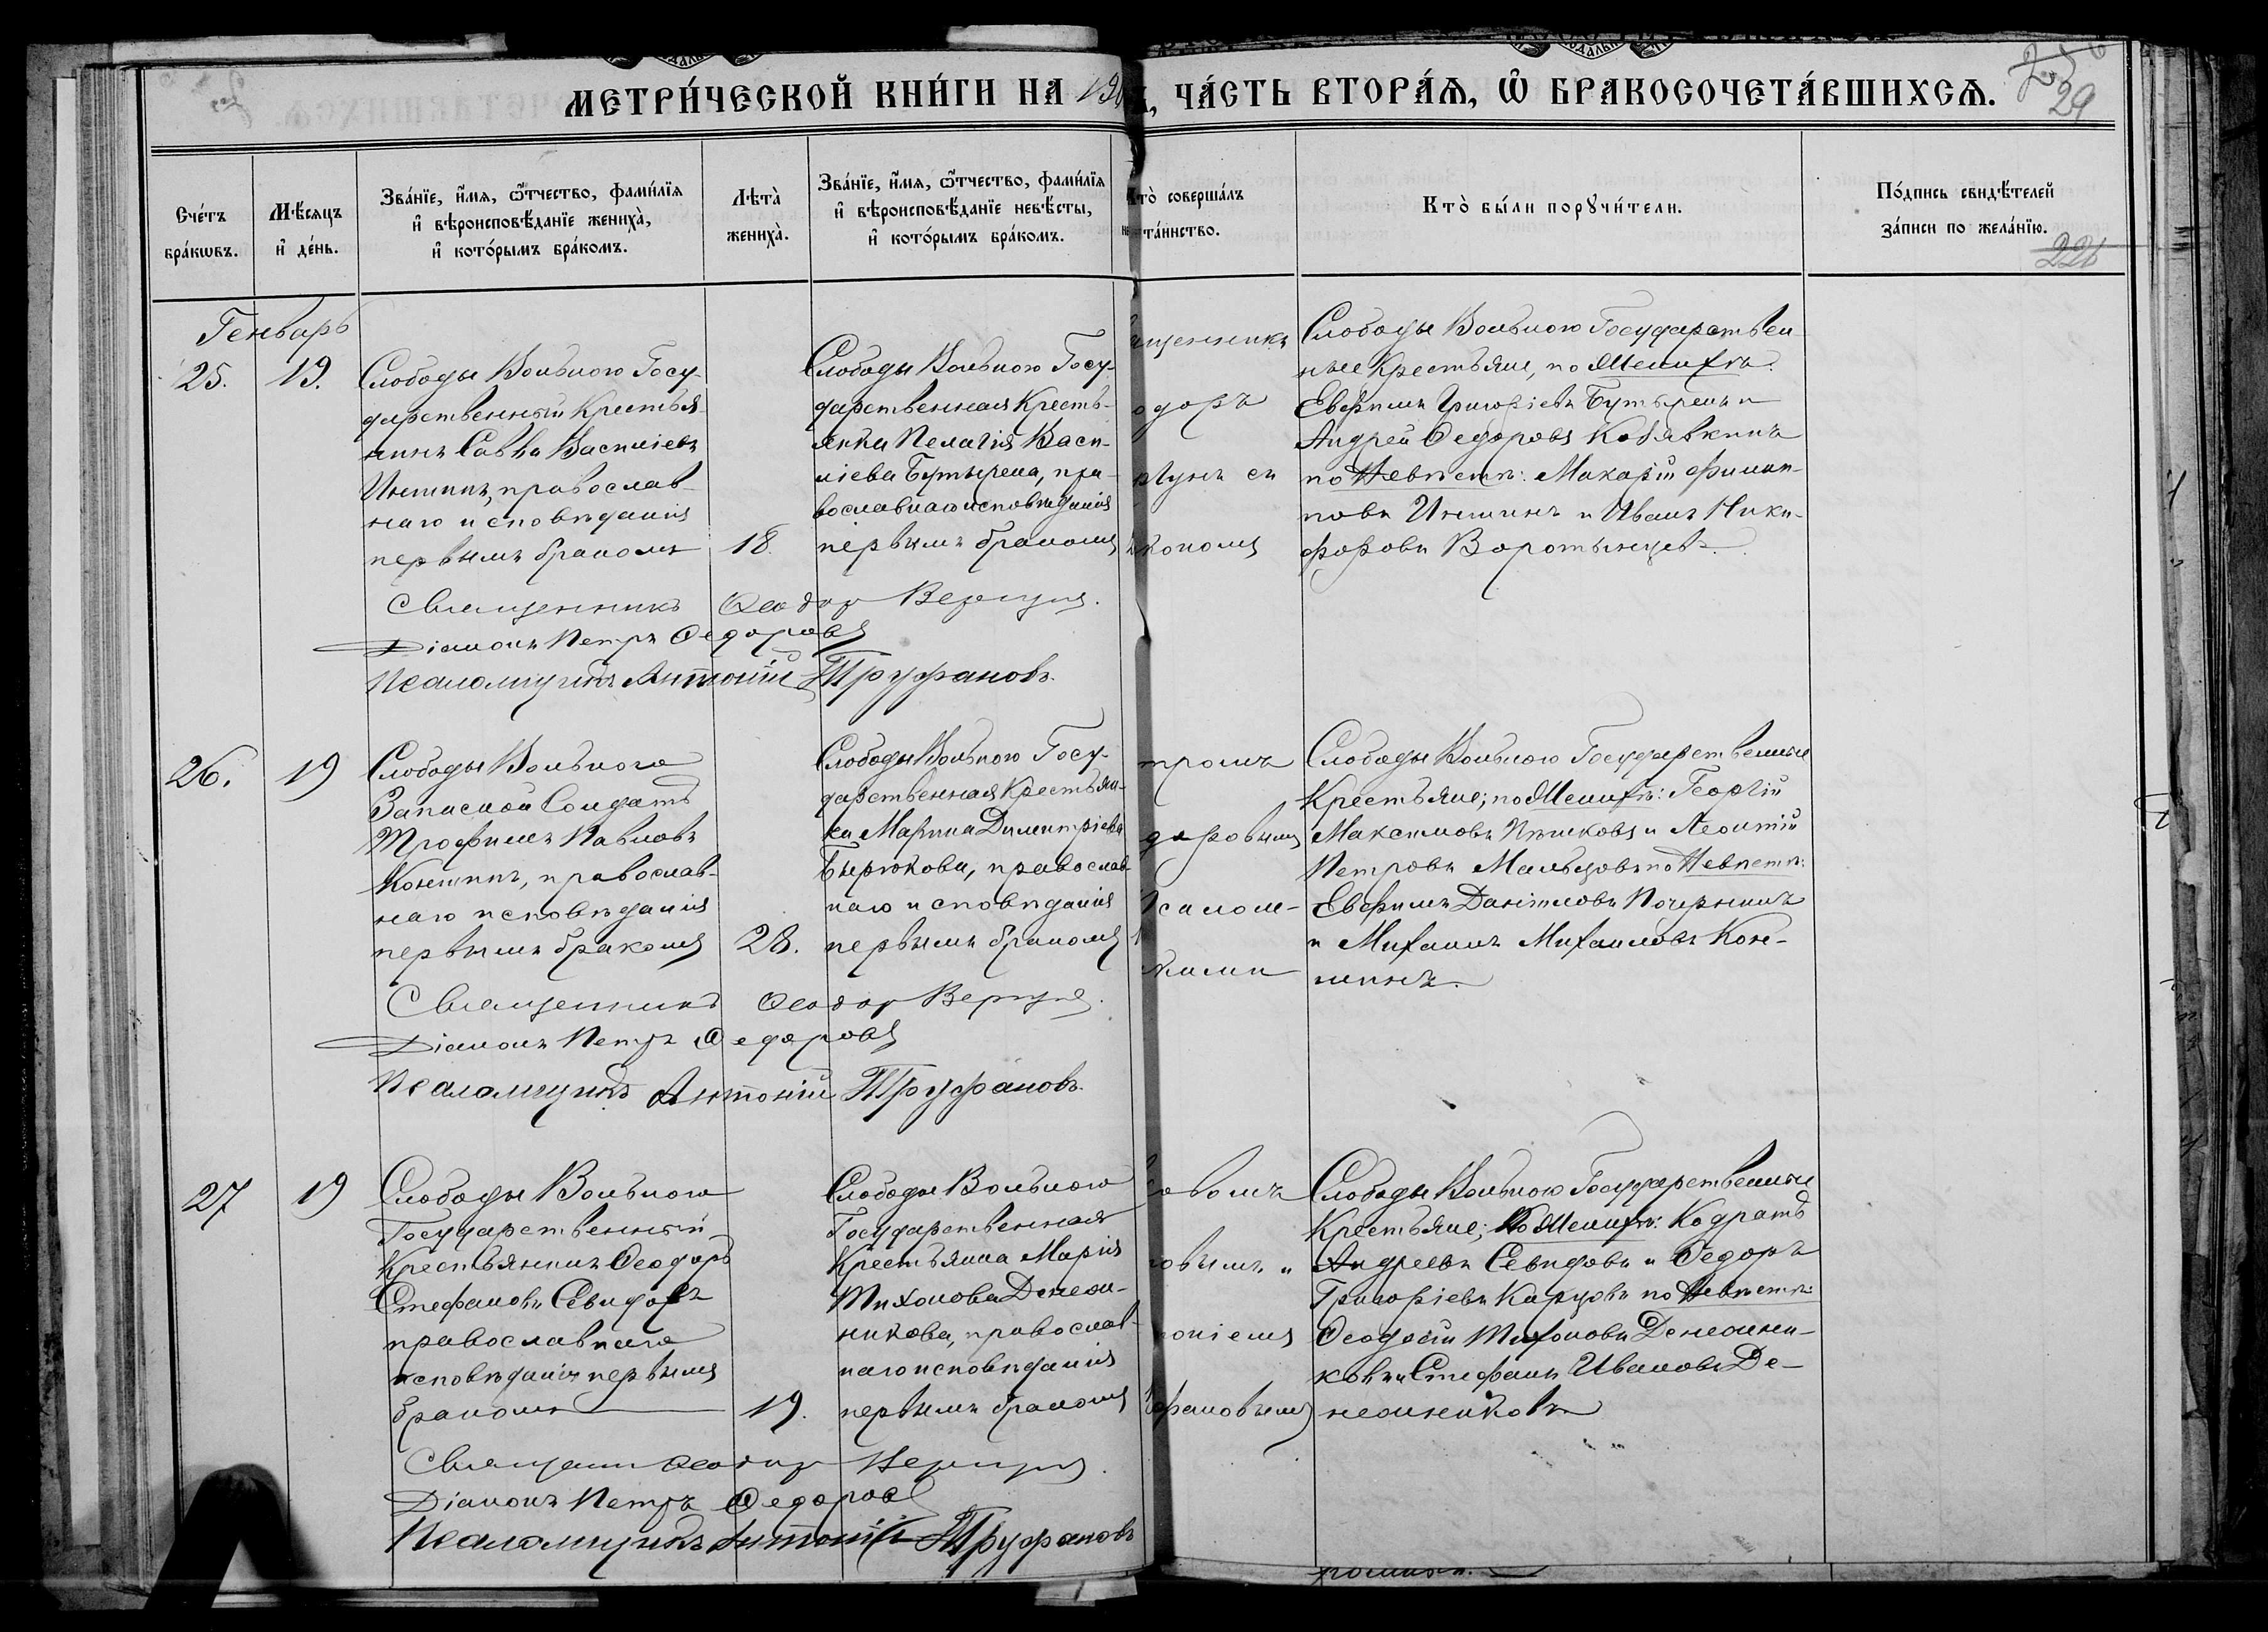 МЕТРИ́ЧЕСКОЙ КНИ́ГИ НА 190 , ЧА́СТЬ ВТОРА́Я, Ѽ БРАКОСОЧЕТА́ВШИХСѦ.
29
Сче́тъ бра́кѡвъ.
Мѣ́сяцъ и҆ де́нь.
Зва́нїе, и҆́мя, ѻ҆́тчество, фами́лїя и҆ вѣроисповѣ́данїе жениха̀, и҆ кото́рымъ бра́комъ.
Лѣта̀ жениха̀.
Зва́нїе, и҆́мя, ѻ҆́тчество, фами́лїя и҆ вѣроисповѣ́данїе невѣ́сты, и҆ кото́рымъ бра́комъ.
то̀ соверша́лъ та́инство.
Кто̀ бы́ли порꙋчи́тели.
По́дпись свидѣ́телей за́писи по жела́нїю.
226
Генварь
25.
19.
Слободы Вольного Госу-
дарственный Крестья-
нинъ Савва Василіевъ
православ-
наго исповѣданія
первымъ бракомъ
18.
Слободы Вольного Госу-
дарственная Кресть-
янка Пелагія Васи-
ліева Бутырева, пра-
вославнаго исповѣданія
первымъ бракомъ
ященникъ
одоръ
ргунъ съ
іакономъ
Слободы Вольного Государствен-
ные Крестьяне, по Женихѣ:
Евфимъ Григоріевъ и
Андрей Федоровъ Козявкинъ
по Невѣстѣ: Макарій Филип-
повъ и Иванъ Ники-
форовъ Воротынцевъ.
Священникъ Ѳеодор Вергунъ.
Діаконъ Петръ Ѳедоровъ
Псаломщикъ Антоній Труфановъ.
26.
19
Слободы Вольного
Запасной Солдатъ
Трофимъ Павловъ
Коншинъ, православ-
наго исповѣданія
первымъ бракомъ
28.
Слободы Вольного Госу-
дарственная Крестьян-
ка Марина Димитріева
Бирюкова, православ-
наго исповѣданія
первымъ бракомъ
тромъ
доровымъ
Псалом-
иками
Слободы Вольного Государственные
Крестьяне; по Женихѣ: Георгій
Максимовъ и Леонтій
Петровъ Мальцовъ по Невѣстѣ:
Евфимъ Даніиловъ
и Михаилъ Михаиловъ Кон-
шинъ.
Священникъ Ѳеодор Вергунъ.
Діаконъ Петръ Ѳедоровъ
Псаломщикъ Антоній Труфановъ.
27
19
Слободы Вольного
Государственный
Крестьянинъ Ѳеодоръ
Стефановъ Севидовъ
православнаго
исповѣданія первымъ
бракомъ
19.
Слободы Вольного
Государственная
Крестьянка Марія
Тихонова Денеж-
никова, православ-
наго исповѣданія
первымъ бракомъ
овымъ и
тоніемъ
уфановымъ
Слободы Вольного Государственные
Крестьяне; По Женихѣ: Кодратъ
Андреевъ Севидовъ и Ѳедоръ
Григоріевъ Карцовъ по Невѣстѣ:
Ѳеодосій Тихоновъ Денежни-
ковъ и Стефанъ Ивановъ Де-
нежниковъ
Священник Ѳеодор Вергунъ.
Діаконъ Петръ Ѳедоровъ
Псаломщикъ Антоній Труфановъ